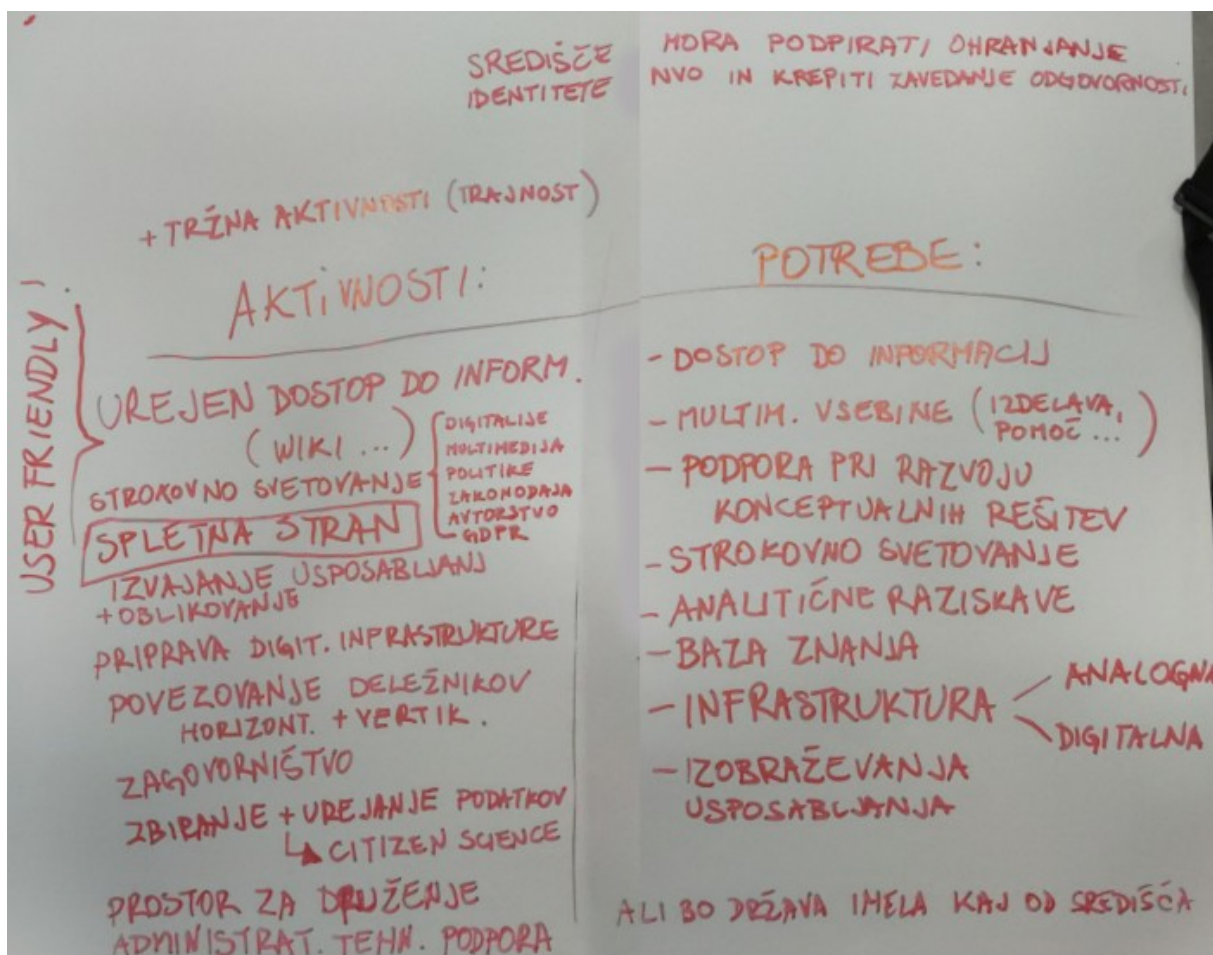 SREDIŠČE
IDENTITETE
MORA PODPIRATI OHRANJANJE
NVO IN KREPITI ZAVEDANJE ODGOVORNOSTI.
+ TRŽNA AKTIVNOSTI (TRAJNOST)
AKTIVNOSTI:
USER FRIENDLY!
UREJEN DOSTOP DO INFORM.
(WIKI ...)
STROKOVNO SVETOVANJE
DIGITALIJE
MULTIMEDIJA
POLITIKE
ZAKONODAJA
AVTORSTVO
GDPR
SPLETNA STRAN
IZVAJANJE USPOSABLJANJ
+ OBLIKOVANJE
PRIPRAVA DIGIT. INFRASTRUKTURE
POVEZOVANJE DELEŽNIKOV
HORIZONT. + VERTIK.
ZAGOVORNIŠTVO
ZBIRANJE + UREJANJE PODATKOV
CITIZEN SCIENCE
PROSTOR ZA DRUŽENJE
ADMINISTRAT. TEHN. PODPORA
POTREBE:
- DOSTOP DO INFORMACIJ
- MULTIM. VSEBINE (IZDELAVA, POMOČ ...)
- PODPORA PRI RAZVOJU
KONCEPTUALNIH REŠITEV
- STROKOVNO SVETOVANJE
- ANALITIČNE RAZISKAVE
- BAZA ZNANJA
- INFRASTRUKTURA
ANALOGNA
DIGITALNA
- IZOBRAŽEVANJA
USPOSABLJANJA
ALI BO DRŽAVA IMELA KAJ OD SREDIŠČA